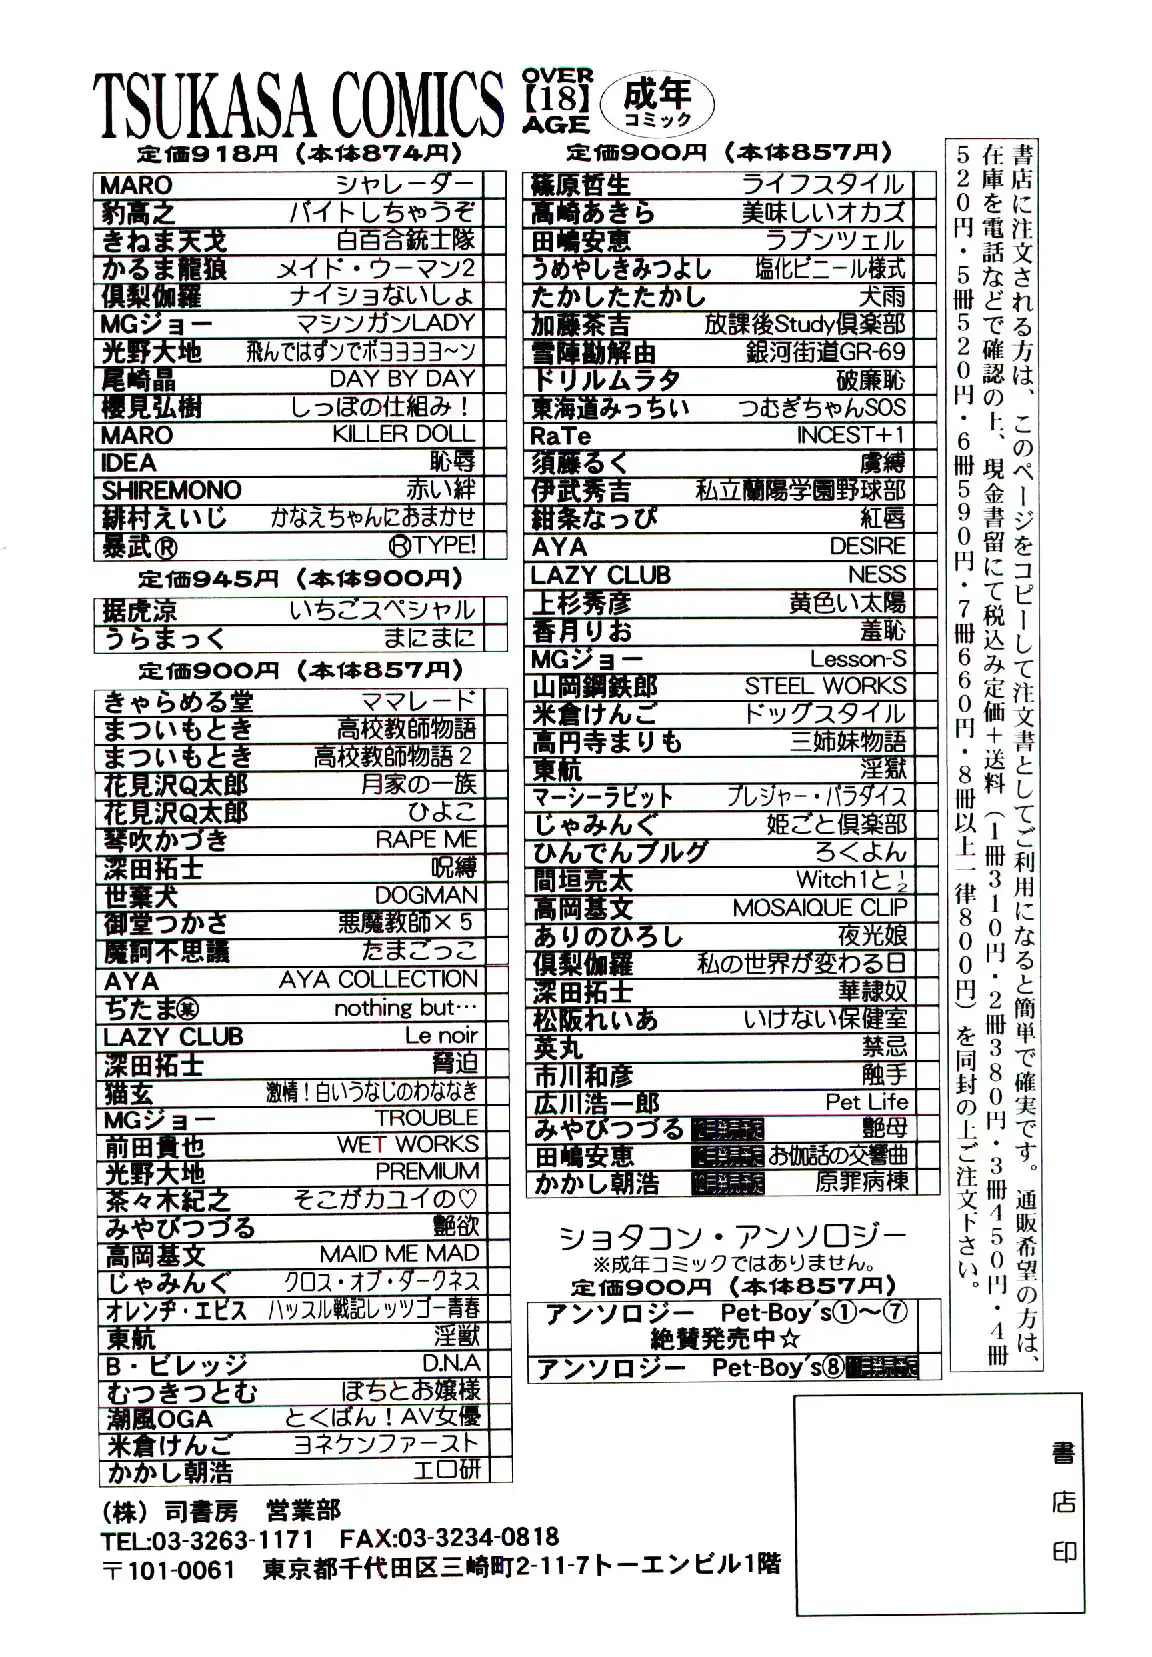 TSUKASA COMICS
OVER
【18】
AGE
成年
コミック
定価918円（本体874円）
MARO シャレーダー
豹高之 バイトしちゃうぞ
きねま天戈 白百合銃士隊
かるま龍狼 メイド・ウーマン2
倶梨伽羅 ナイショないしょ
MGジョー マシンガンLADY
光野大地 飛んではずンでボヨヨヨヨ～ン
尾崎晶 DAY BY DAY
櫻見弘樹 しっぽの仕組み！
MARO KILLER DOLL
IDEA 恥辱
SHIREMONO 赤い絆
緋村えいじ かなえちゃんにおまかせ
暴武Ⓡ ⓇTYPE!
定価945円（本体900円）
据虎涼 いちごスペシャル
うらまっく まにまに
定価900円（本体857円）
きゃらめる堂 ママレード
まついもとき 高校教師物語
まついもとき 高校教師物語2
花見沢Q太郎 月家の一族
花見沢Q太郎 ひよこ
琴吹かづき RAPE ME
深田拓士 呪縛
世棄犬 DOGMAN
御堂つかさ 悪魔教師×5
魔訶不思議 たまごっこ
AYA AYA COLLECTION
ぢたま㊣ nothing but…
LAZY CLUB Le noir
深田拓士 脅迫
猫玄 激情！白いうなじのわななき
MGジョー TROUBLE
前田貴也 WET WORKS
光野大地 PREMIUM
茶々木紀之 そこがカユイの♡
みやびつづる 艶欲
高岡基文 MAID ME MAD
じゃみんぐ クロス・オブ・ダークネス
オレンヂ・エビス ハッスル戦記レッツゴー青春
東航 淫獣
B・ビレッジ D.N.A
むつきつとむ ぽちとお嬢様
潮風OGA とくばん！AV女優
米倉けんご ヨネケンファースト
かかし朝浩 エロ研
定価900円（本体857円）
篠原哲生 ライフスタイル
高崎あきら 美味しいオカズ
田嶋安恵 ラプンツェル
うめやしきみつよし 塩化ビニール様式
たかしたたかし 犬雨
加藤茶吉 放課後Study倶楽部
雪陣勘解由 銀河街道GR-69
ドリルムラタ 破廉恥
東海道みっちい つむぎちゃんSOS
RaTe INCEST+1
須藤るく 虜縛
伊武秀吉 私立蘭陽学園野球部
紺条なっぴ 紅唇
AYA DESIRE
LAZY CLUB NESS
上杉秀彦 黄色い太陽
香月りお 羞恥
MGジョー Lesson-S
山岡鋼鉄郎 STEEL WORKS
米倉けんご ドッグスタイル
高円寺まりも 三姉妹物語
東航 淫獄
マーシーラビット プレジャー・パラダイス
じゃみんぐ 姫ごと倶楽部
ひんでんブルグ ろくよん
間垣亮太 Witch1と½
高岡基文 MOSAIQUE CLIP
ありのひろし 夜光娘
倶梨伽羅 私の世界が変わる日
深田拓士 華隷奴
松阪れいあ いけない保健室
英丸 禁忌
市川和彦 触手
広川浩一郎 Pet Life
みやびつづる 艶母
田嶋安恵 お伽話の交響曲
かかし朝浩 原罪病棟
ショタコン・アンソロジー
※成年コミックではありません。
定価900円（本体857円）
アンソロジー Pet-Boy's①～⑦
絶賛発売中☆
アンソロジー Pet-Boy's⑧
書店に注文される方は、このページをコピーして注文書としてご利用になると簡単で確実です。通販希望の方は、
在庫を電話などで確認の上、現金書留にて税込み定価＋送料（1冊310円・2冊380円・3冊450円・4冊
520円・5冊520円・6冊590円・7冊660円・8冊以上一律800円）を同封の上ご注文下さい。
（株）司書房 営業部
TEL:03-3263-1171 FAX:03-3234-0818
〒101-0061 東京都千代田区三崎町2-11-7トーエンビル1階
書店印